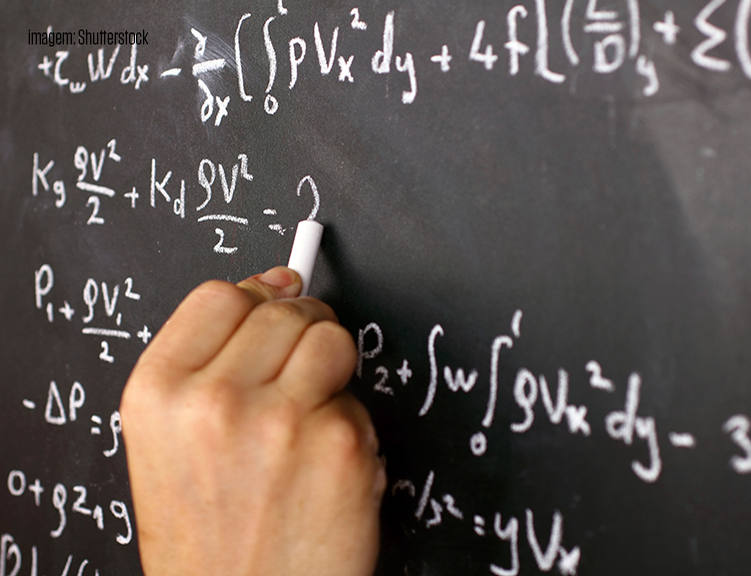 imagem: Shutterstock
+τw W dx - ∂/∂x (∫₀¹ ρVx² dy + 4f[(L/D)y + Σ(
Kg ρV²/2 + Kd ρV²/2 = 2
P₁ + ρV₁²/2 +
P₂ + ∫w ∫₀¹ ρVx² dy - 3
-ΔP = ρ
0 + ρz₁g
m/s² = yVx